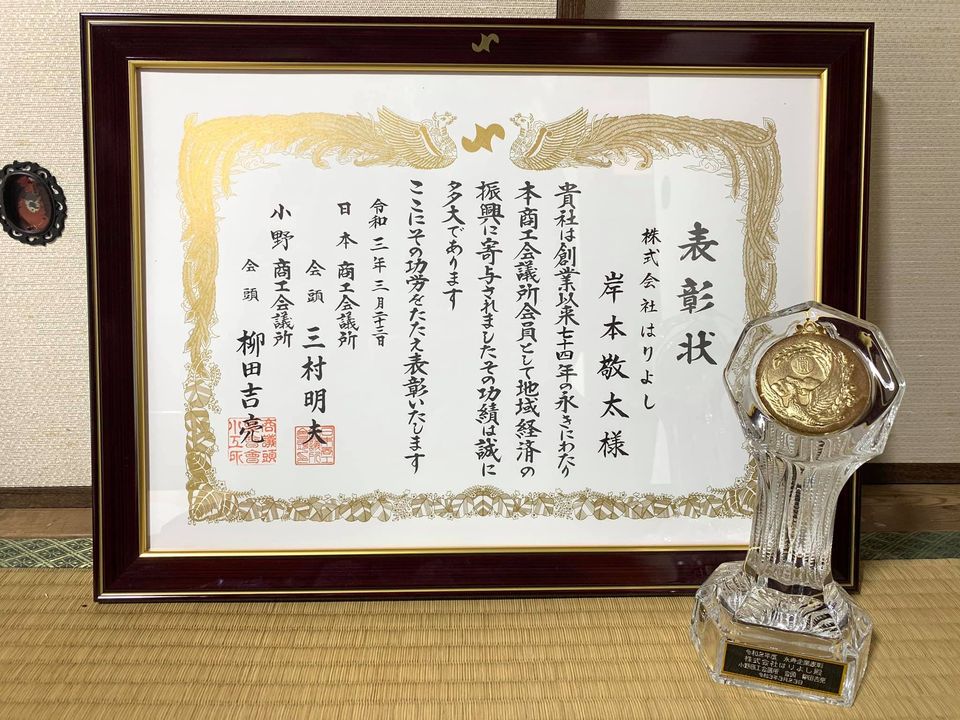 表彰状
株式会社はりよし
岸本敬太様
貴社は創業以来七十四年の永きにわたり
本商工会議所会員として地域経済の
振興に寄与されましたその功績は誠に
多大であります
ここにその功労をたたえ表彰いたします
令和三年三月二十三日
日本商工会議所
会頭 三村明夫
小野商工会議所
会頭 柳田吉亮
令和2年度 永寿企業表彰
株式会社はりよし殿
小野商工会議所 会頭 柳田吉亮
令和3年3月23日